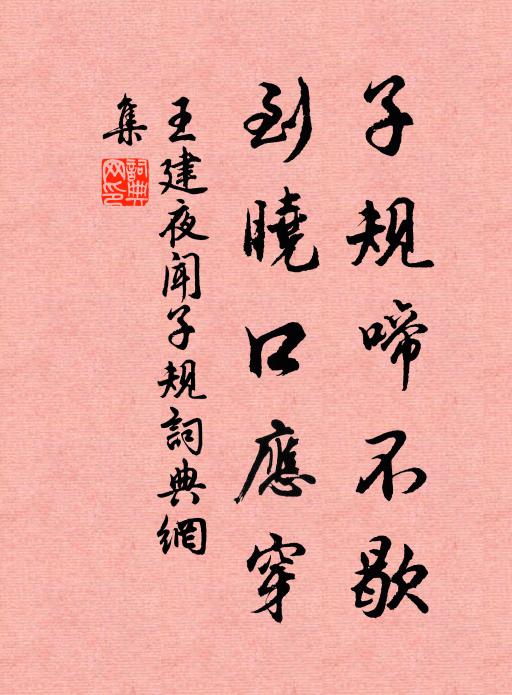 子規啼不歇
到曉口應穿
王建夜闻子规詞典網
集
詞典網印